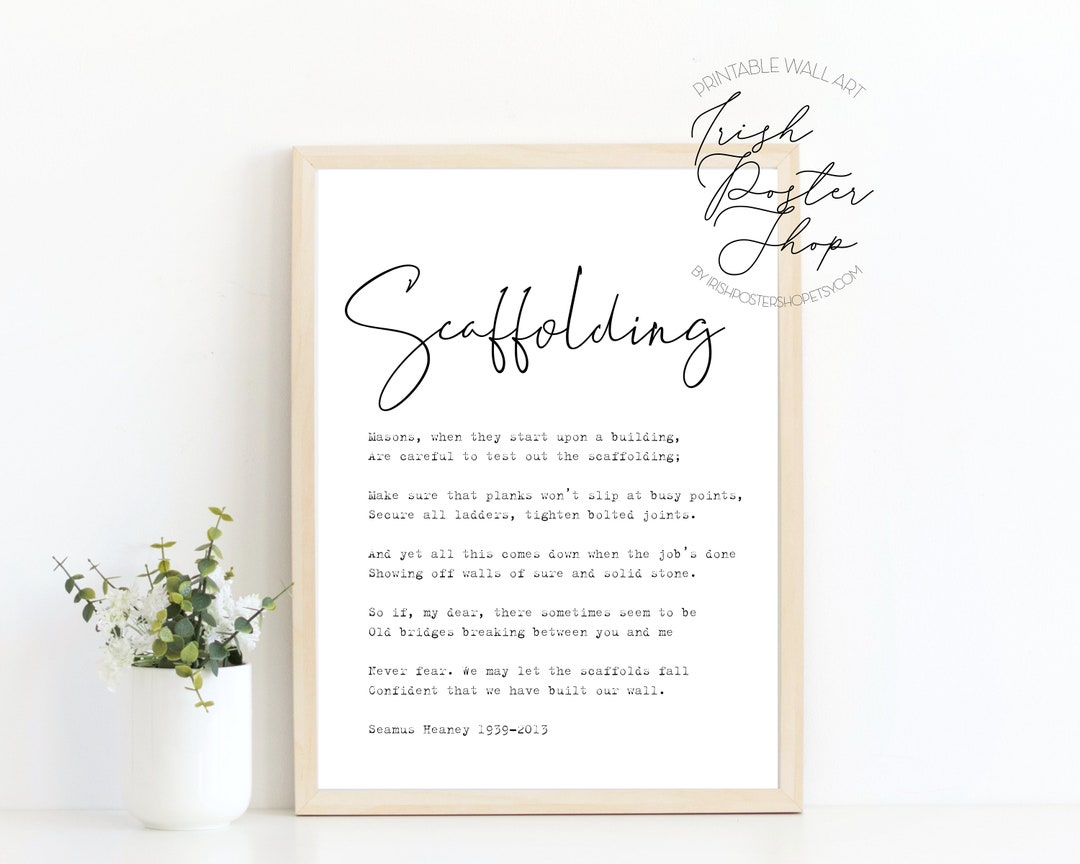 PRINTABLE WALL ART
Irish
Poster
Shop
BY IRISHPOSTERSHOP.ETSY.COM
Scaffolding
Masons, when they start upon a building,
Are careful to test out the scaffolding;
Make sure that planks won't slip at busy points,
Secure all ladders, tighten bolted joints.
And yet all this comes down when the job's done
Showing off walls of sure and solid stone.
So if, my dear, there sometimes seem to be
Old bridges breaking between you and me
Never fear. We may let the scaffolds fall
Confident that we have built our wall.
Seamus Heaney 1939-2013